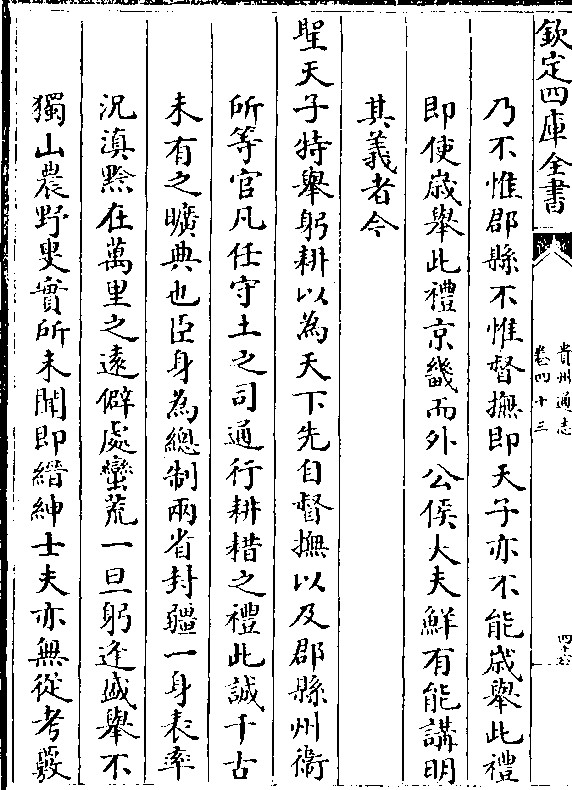 欽定四庫全書
貴州通志
卷四十三
乃不惟郡縣不惟督撫即天子亦不能嵗舉此禮
即使嵗舉此禮京畿而外公侯大夫鮮有能講明
其義者今
聖天子特舉躬耕以為天下先自督撫以及郡縣州衛
所等官凡任守土之司通行耕耤之禮此誠千古
未有之曠典也臣身為總制兩省封疆一身表率
況滇黔在萬里之遠僻處蠻荒一旦躬逢盛舉不
獨山農野叟實所未聞即縉紳士夫亦無從考覈